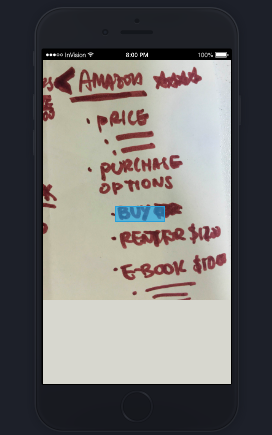 InVision 8:00 PM 100%
AMAZON
· PRICE
· PURCHASE
OPTIONS
· BUY
· RENT FOR $12.00
· E-BOOK $10.00